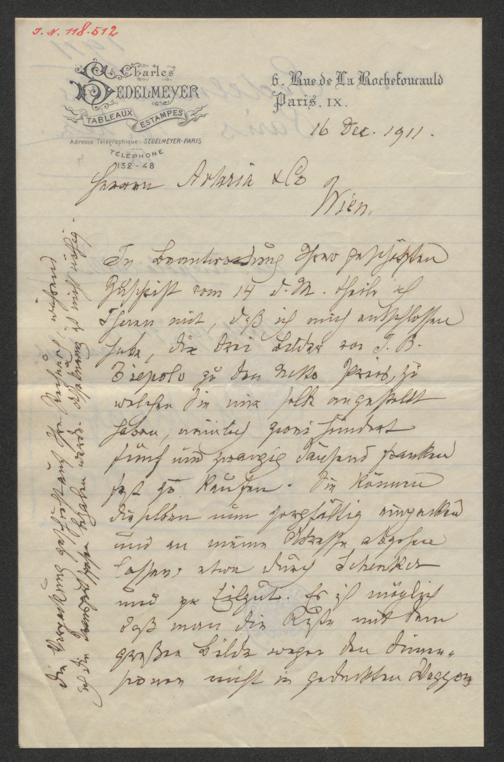 I. N. 118.512
Charles
SEDELMEYER
TABLEAUX ESTAMPES
Adresse Télégraphique: SEDELMEYER-PARIS
TÉLÉPHONE
132-48
6. Rue de La Rochefoucauld
Paris, IX.
16 Dec. 1911.
Herrn Artaria & Co
Wien.
In Beantwortung Ihrer geschätzten
Zuschrift vom 14 d. M. theile ich
Ihnen mit, daß ich mich entschlossen
habe, die drei Bilder von J. B.
Tiepolo zu den netto Preis, zu
welchen Sie mir selbe angestellt
haben, nämlich zwei hundert
fünf und zwanzig Tausend Franken
fest zu kaufen. Sie können
dieselben nun sorgfältig einpacken
und an meine Adresse abgehen
lassen, etwa durch Schenker
und per Eilgut. Es ist möglich
daß man die Kiste mit dem
großen Bilde wegen den Dimen-
sionen nicht in gedeckten Waggon
Die Verpackung geschieht auf Ihre Rechnung, während
ich die Transportspesen haben werde. Versicherung ist nicht nöthig.